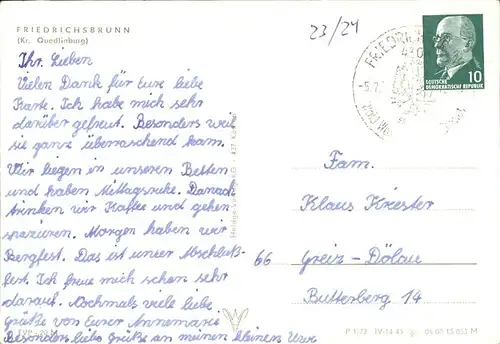 FRIEDRICHSBRUNN
(Kr. Quedlinburg)
23/24
Ihr Lieben
Vielen Dank für Eure liebe
Karte. Ich habe mich sehr
darüber gefreut. Besonders weil
sie ganz überraschend kam.
Wir liegen in unseren Betten
und haben Mittagsruhe. Danach
trinken wir Kaffee und gehen
spazieren. Morgen haben wir
Bergfest. Das ist unser Abschluß-
fest. Ich freue mich schon sehr
darauf. Nochmals viele liebe
Grüße von Eurer Annemarie
Besonders liebe Grüße an meinen kleinen Uwe
FRIEDRICH
10
DEUTSCHE
DEMOKRATISCHE REPUBLIK
Fam.
Klaus Kriester
66 Greiz-Dölau
Butterberg 14
P 1/72 IV-14-45